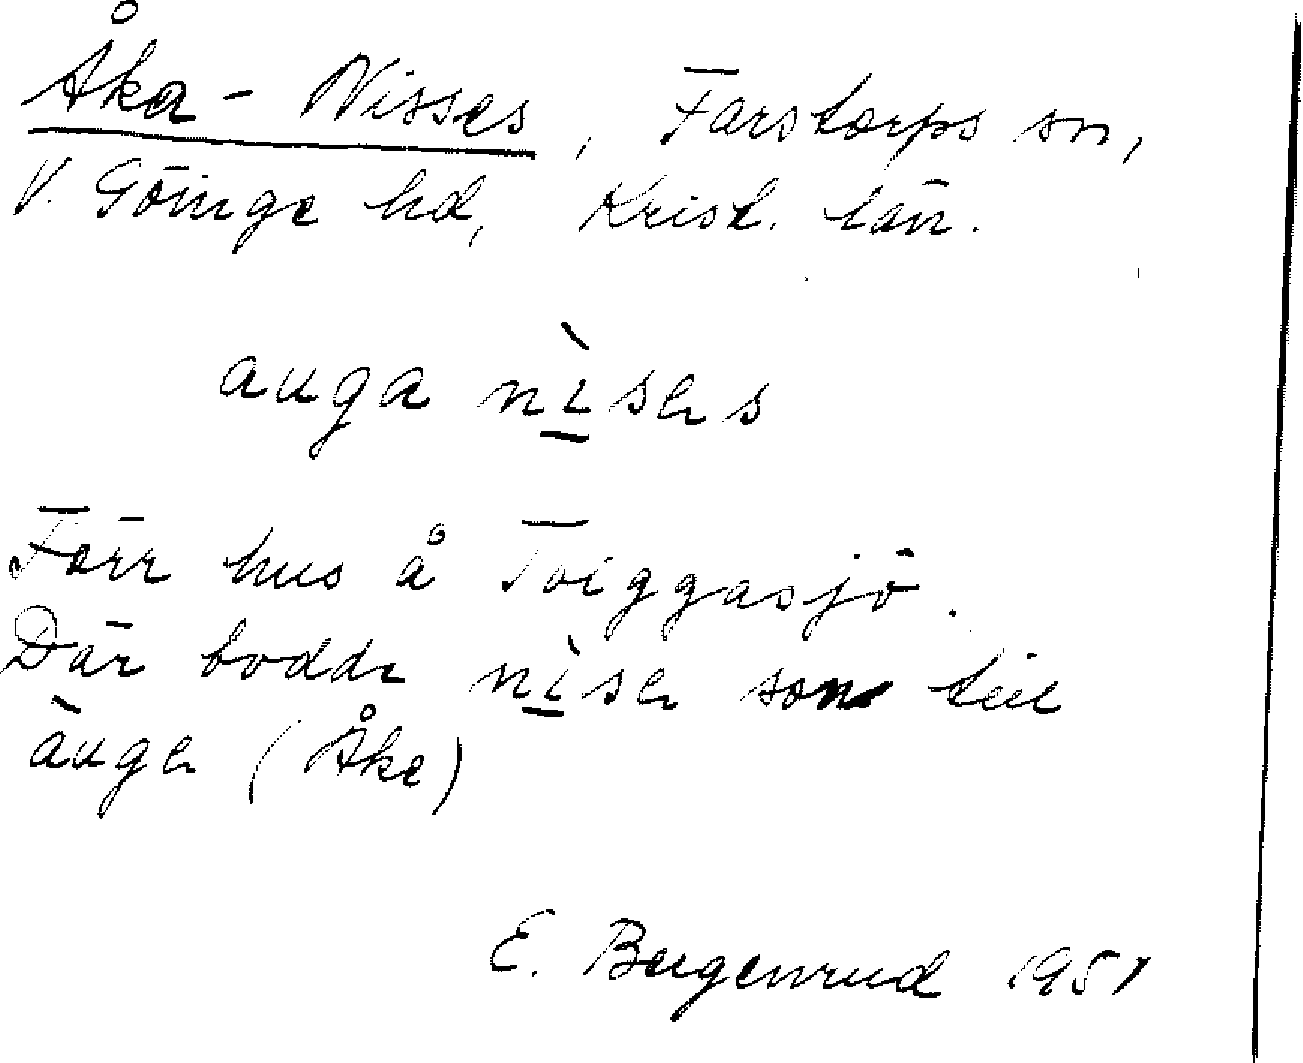 Åka-Nisses, Farstorps sn,
V. Göinge hd, Krist. län.
auga nìses
Förr hus å Toiggasjö.
Där bodde nìse son till
àuge (Åke)
E. Bergenrud 1951